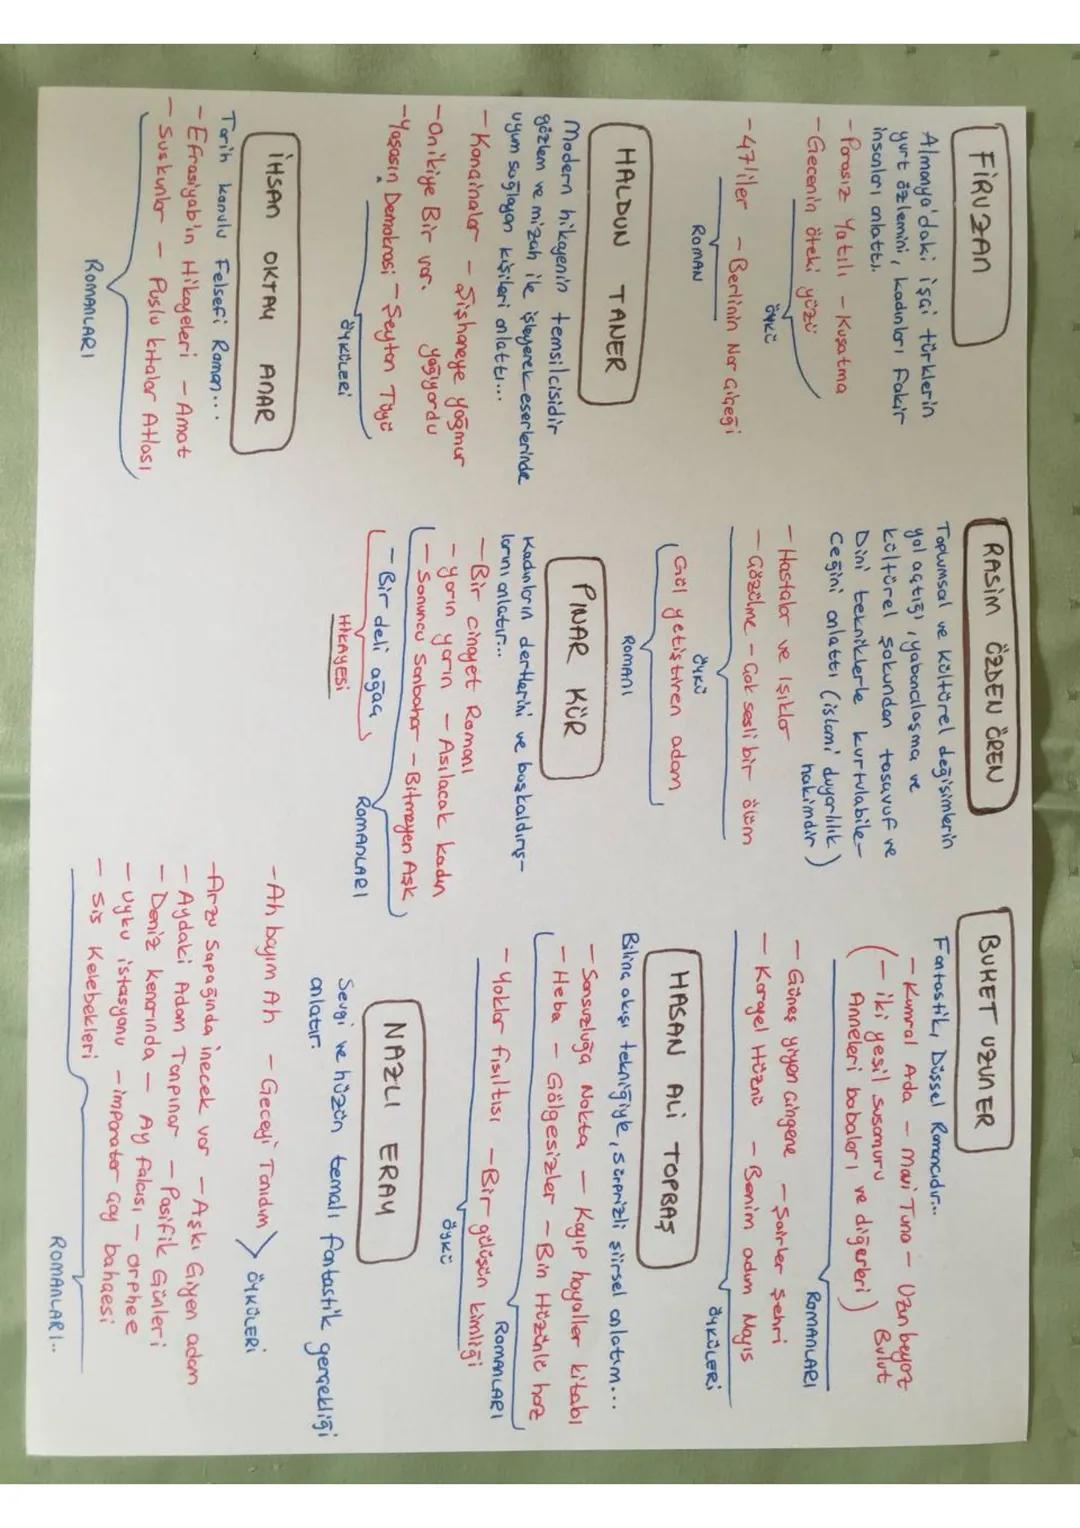 FİRUZAN
Almanya'daki işçi türklerin
yurt özlemini, kadınları fakir
insanları anlattı.
- Parasız Yatılı - Kuşatma
- Gecenin öteki yüzü
ÖYKÜ
- 47'liler - Berlinin Nar Çiçeği
ROMAN
HALDUN TANER
Modern hikayenin temsilcisidir
gözlem ve mizah ile işleyerek eserlerinde
uyum sağlayan kişileri anlattı...
- Konçinalar - Şişhaneye yağmur
yağıyordu
- Onikiye Bir var.
- Yaşasın Demokrasi - Şeytan Tüyü
ÖYKÜLERİ
İHSAN OKTAY ANAR
Tarih konulu Felsefi Roman...
- Efrasiyab'ın Hikayeleri - Amat
- Suskunlar - Puslu kıtalar Atlası
ROMANLARI
RASİM ÖZDEN ÖREN
Toplumsal ve kültürel değişimlerin
yol açtığı, yabancılaşma ve
kültürel şokundan tasavuf ve
Dini tekniklerle kurtulabile-
ceğini anlattı (islami duyarlılık
hakimdir)
- Hastalar ve Işıklar
- Çözülme - Çok sesli bir ölüm
ÖYKÜ
Gül yetiştiren adam
ROMANI
PINAR KÜR
Kadınların dertlerini ve başkaldırış-
larını anlatır...
- Bir cinayet Romanı
- yarın yarın - Asılacak kadın
- Sonuncu Sonbahar - Bitmeyen Aşk
ROMANLARI
- Bir deli ağaç
HİKAYESİ
BUKET UZUNER
Fantastik, Düşsel Romancıdır...
- Kumral Ada - Mavi Tuna - Uzun beyaz
Bulut
(- iki yeşil susamuru
Anneleri babaları ve diğerleri)
ROMANLARI
- Güneş yiyen çingene - Şairler şehri
- Karayel Hüznü - Benim adım Mayıs
ÖYKÜLERİ
HASAN ALİ TOPBAŞ
Bilinç akışı tekniğiyle, sürprizli şiirsel anlatım...
- Sonsuzluğa Nokta - Kayıp hayaller kitabı
- Heba - Gölgesizler - Bin Hüzünle haz
ROMANLARI
- Yoklar fısıltısı - Bir gülüşün kimliği
ÖYKÜ
NAZLI ERAY
Sevgi ve hüzün temalı fantastik gerçekliği
anlatır.
- Ah bayım Ah - Geceyi Tanıdım
ÖYKÜLERİ
- Arzu Sapağında inecek var - Aşkı Giyen adam
- Aydaki Adam Tanpınar - Pasifik Günleri
- Deniz kenarında - Ay falcısı - orphee
- Uyku istasyonu - imparator çay bahçesi
- Sis Kelebekleri
ROMANLARI..